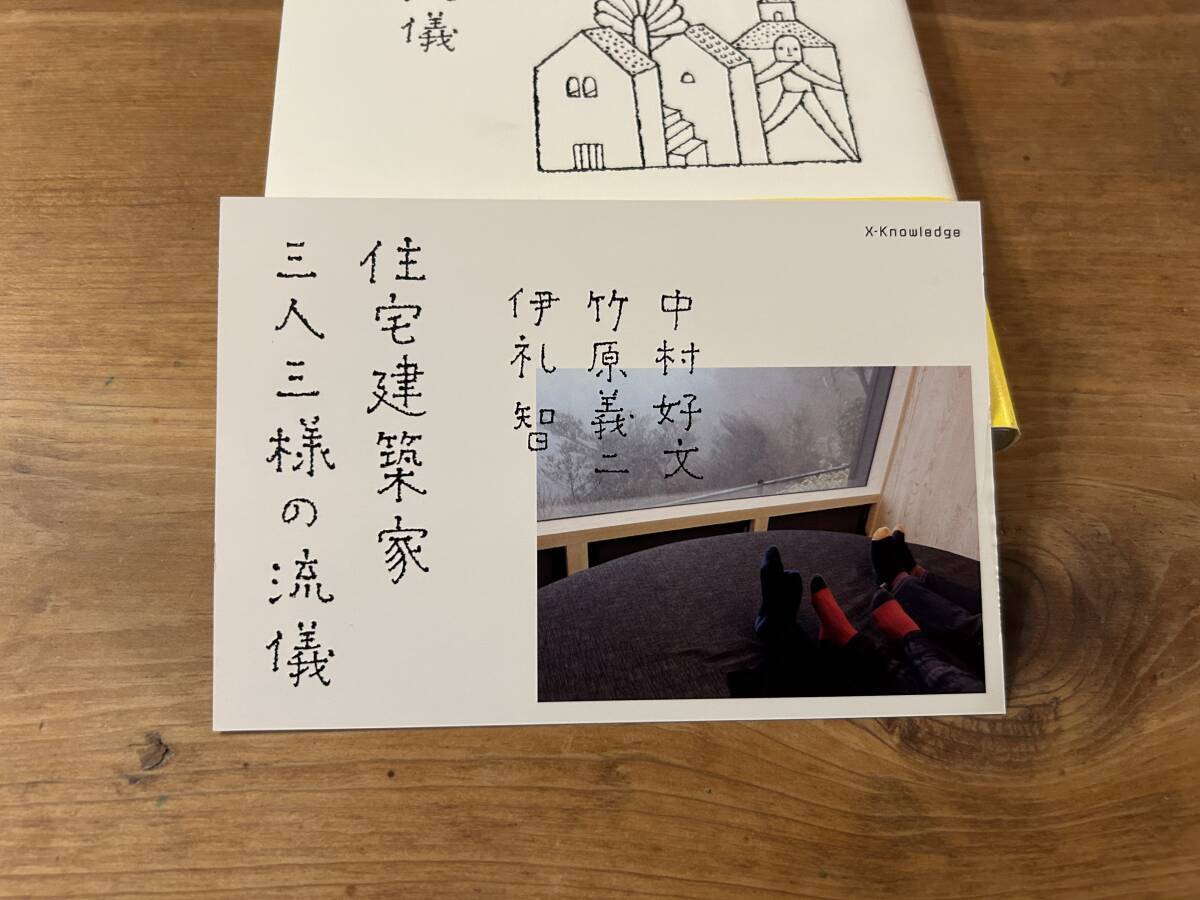 儀
X-Knowledge
中村好文
竹原義二
伊礼智
住宅建築家
三人三様の流儀